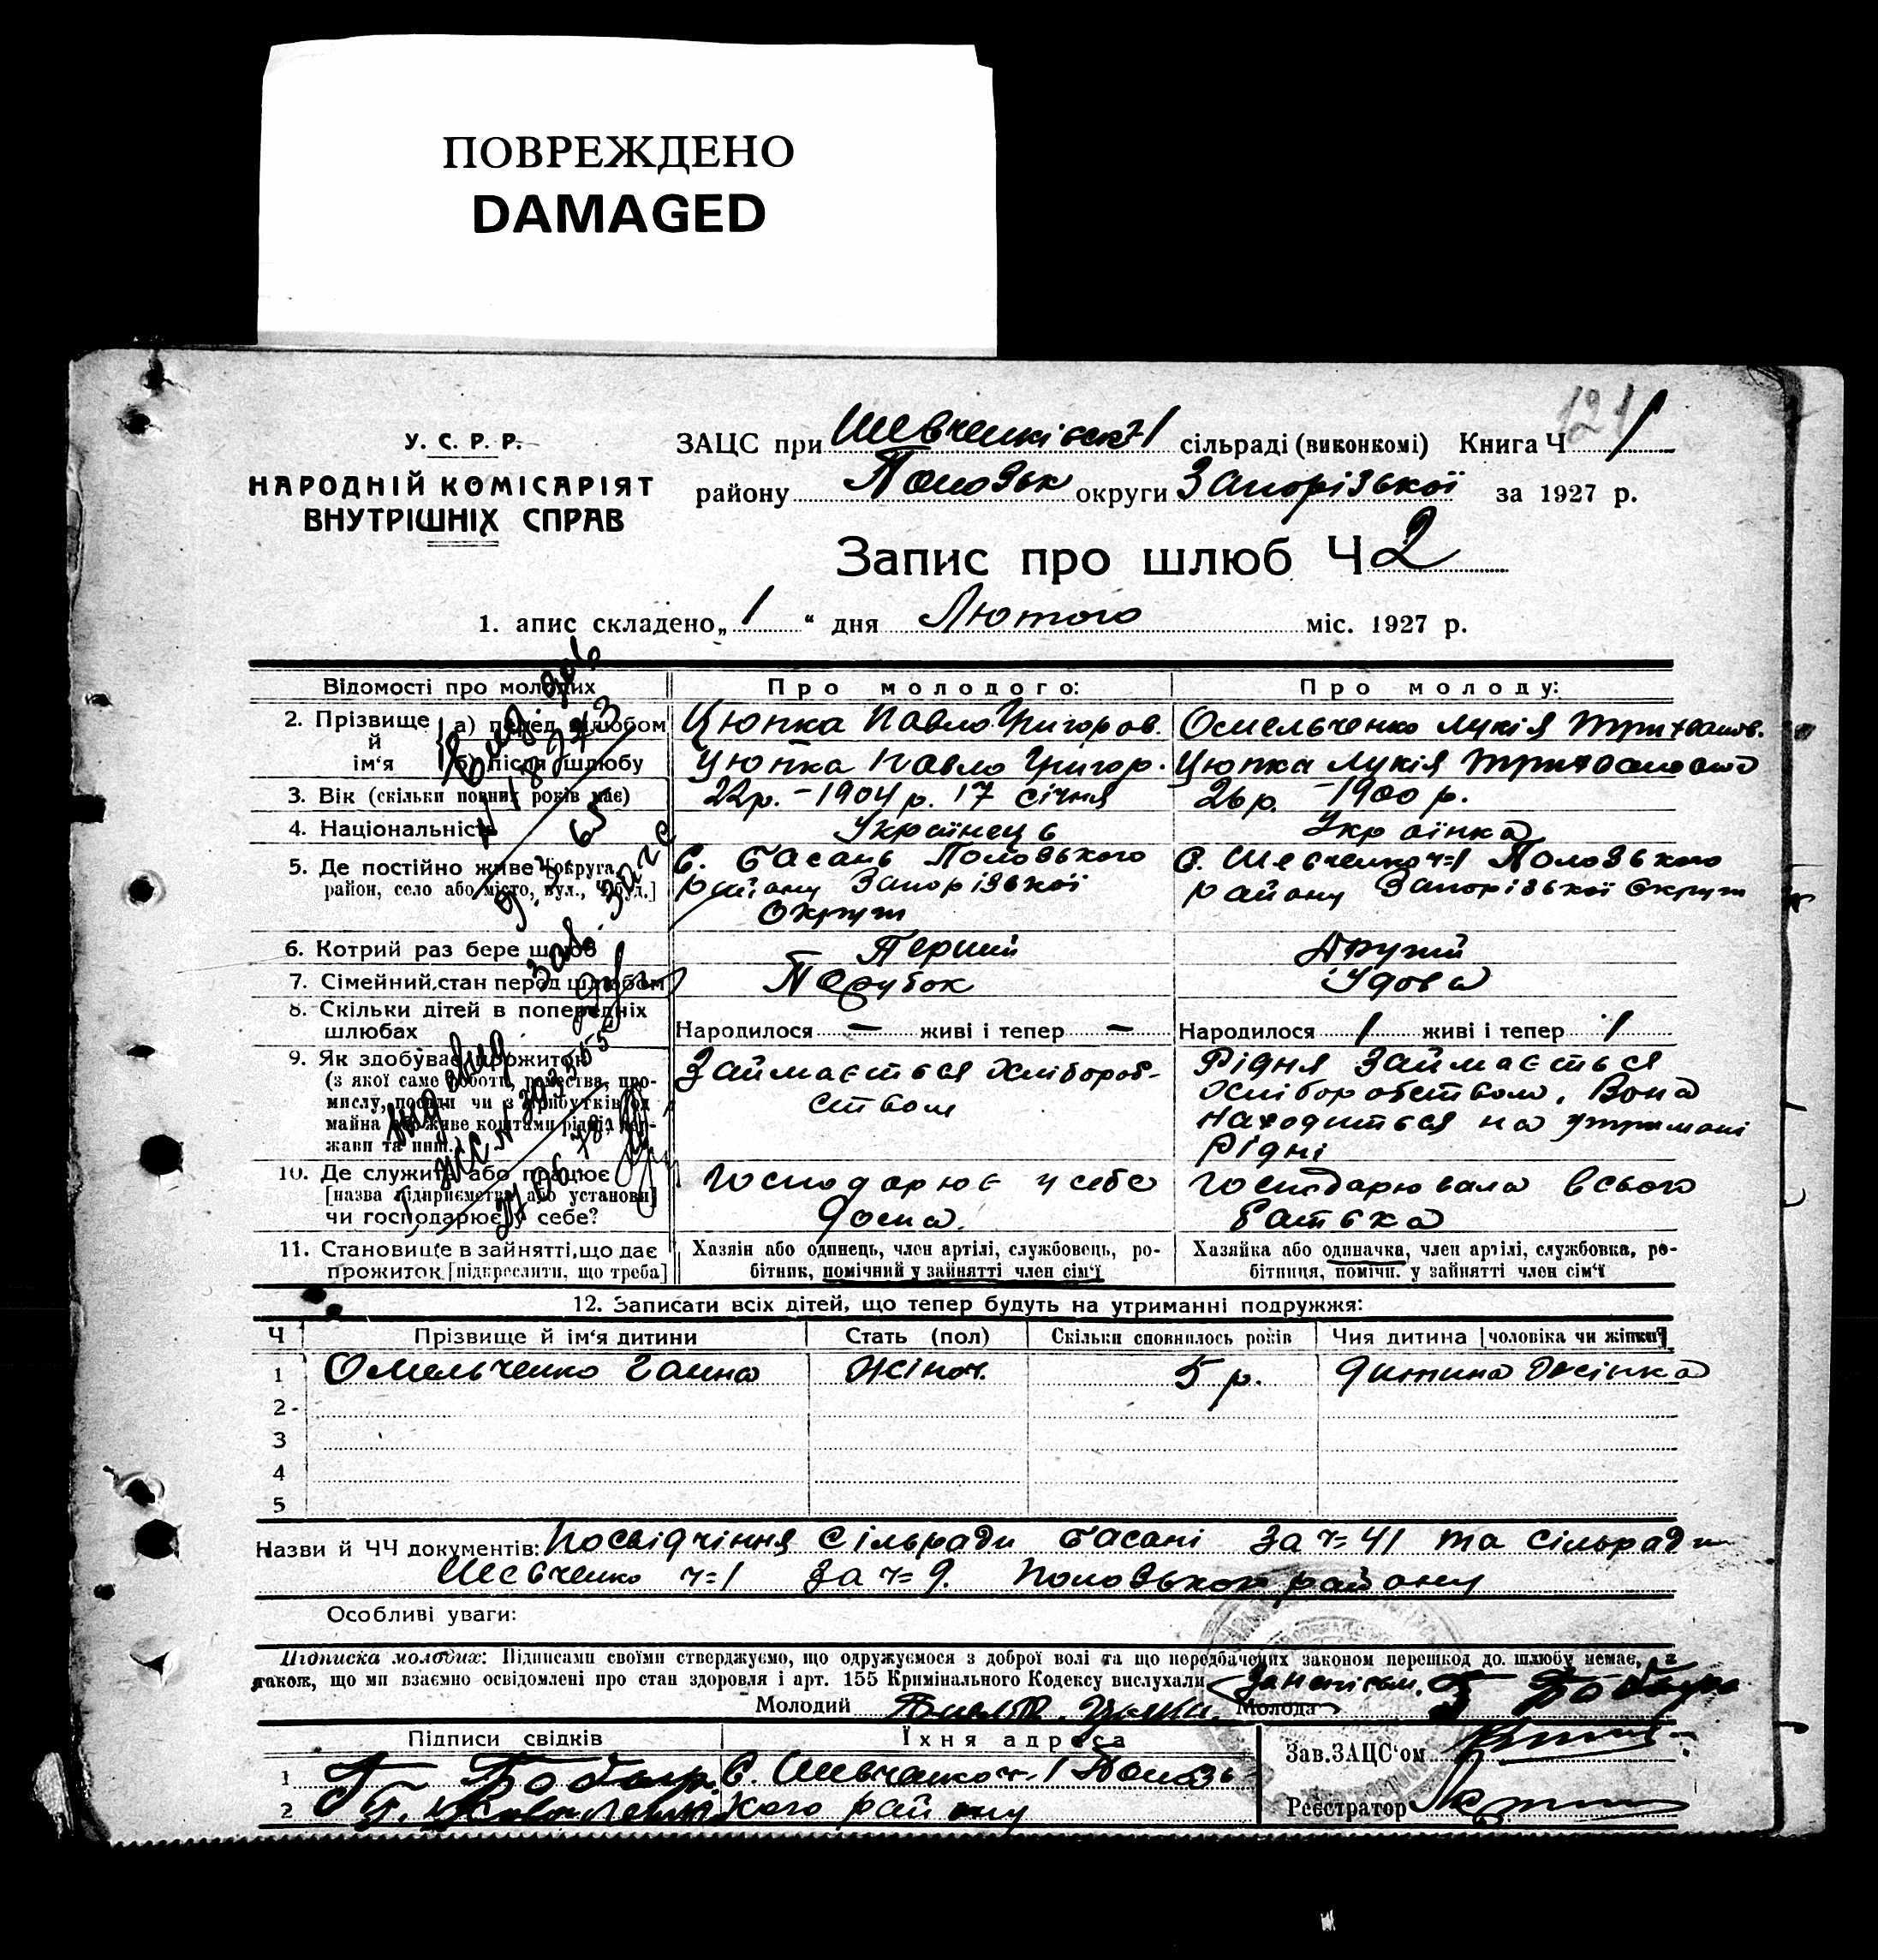 ПОВРЕЖДЕНО
DAMAGED
121
У. С. Р. Р.
НАРОДНІЙ КОМІСАРІЯТ
ВНУТРІШНІХ СПРАВ
ЗАЦС при Шевченківськ 1 сільраді (виконкомі) Книга Ч 1
району Пологськ округи Запорізької за 1927 р.
Запис про шлюб Ч 2
1. апис складено „ 1 “ дня Лютого міс. 1927 р.
Відомості про молодих Про молодого: Про молоду:
2. Прізвище й ім‘я а) перед шлюбом Цюпка Павло Григоров. Омельченко Лукія Трихванов.
б) після шлюбу Цюпка Павло Григор. Цюпка Лукія Трихвановна
3. Вік (скільки повних років має) 22р. – 1904 р. 17 січня 26 р. – 1900 р.
4. Національність Українець Українка
5. Де постійно живе [округа, С. Басань Пологського С. Шевченко ч=1 Пологського
район, село або місто, вул., ч. буд.] району Запорізької району Запорізької Округи
Округи
6. Котрий раз бере шлюб Перший Другий
7. Сімейний стан перед шлюбом Парубок Удова
8. Скільки дітей в попередніх
шлюбах Народилося — живі і тепер — Народилося 1 живі і тепер 1
9. Як здобуває прожиток Займається хлібороб- Рідня Займається
(з якої саме роботи, ремества, про- ством хліборобством. Вона
мислу, посади чи з прибутків од находиться на утримані
майна або живе коштами рідні, дер- Рідні
жави та инш.
10. Де служить або працює Господарює у себе Господарювала в свого
[назва підприємства або установи] дома. батька
чи господарює у себе?
11. Становище в зайнятті, що дає Хазяін або одинець, член артілі, службовець, ро- Хазяйка або одиначка, член артілі, службовка, ро-
прожиток [підкреслити, що треба] бітник, помічний у зайнятті член сім‘ї бітниця, помічн. у зайнятті член сім‘ї
12. Записати всіх дітей, що тепер будуть на утриманні подружжя:
Ч Прізвище й ім‘я дитини Стать (пол) Скільки сповнилось років Чия дитина [чоловіка чи жінки]
1 Омельченко Ганна жіноч. 5 р. дитина жінка
2
3
4
5
Назви й ЧЧ документів: Посвідчіння сільради Басані за ч= 41 та сільради
Шевченко ч=1 за ч= 9. Пологського району
Особливі уваги:
Підписка молодих: Підписами своїми стверджуємо, що одружуємося з доброї волі та що передбачених законом перешкод до шлюбу немає, а
також, що ми взаємно освідомлені про стан здоровля і арт. 155 Кримінального Кодексу вислухали
Молодий Молода
Підписи свідків Їхня адреса Зав. ЗАЦС‘ом
1 С. Шевченко ч. 1 Пологсь-
2 кого району Реєстратор